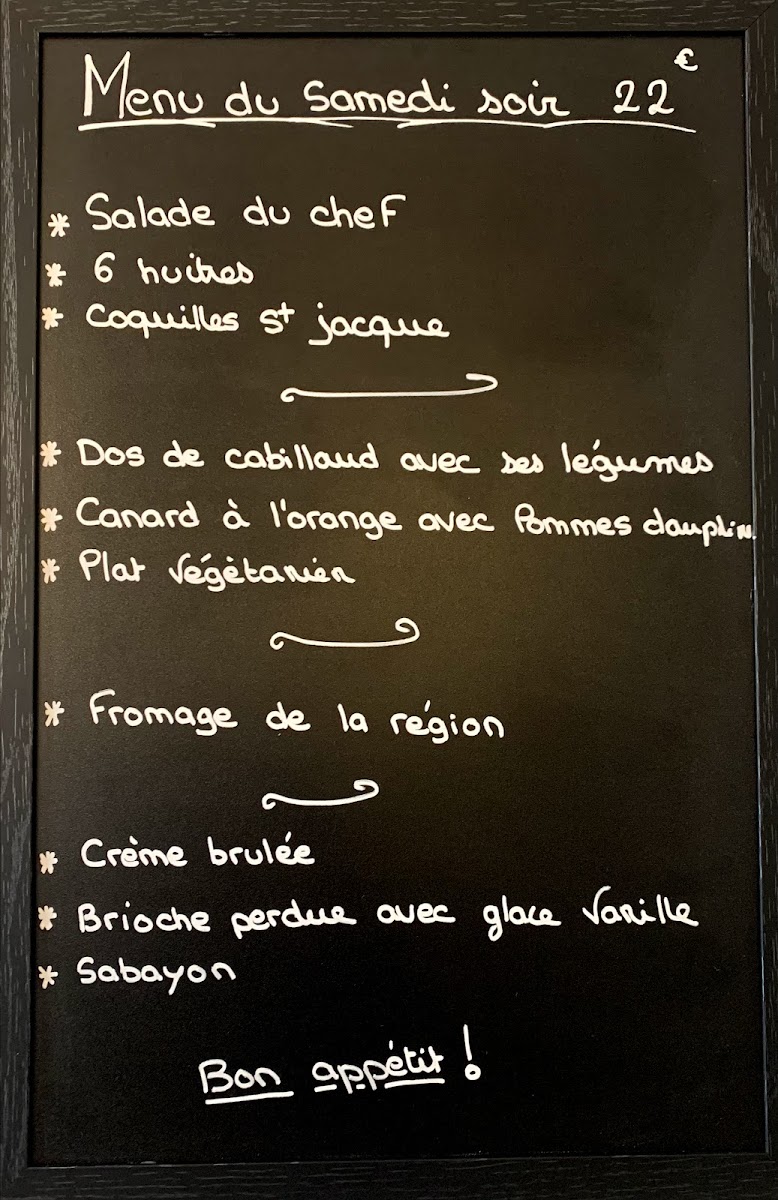 Menu du Samedi soir 22€
* Salade du chef
* 6 huitres
* Coquilles St jacque
* Dos de cabillaud avec ses légumes
* Canard à l'orange avec Pommes dauphin.
* Plat végètarien
* Fromage de la région
* Crème brulée
* Brioche perdue avec glace Vanille
* Sabayon
Bon appétit !